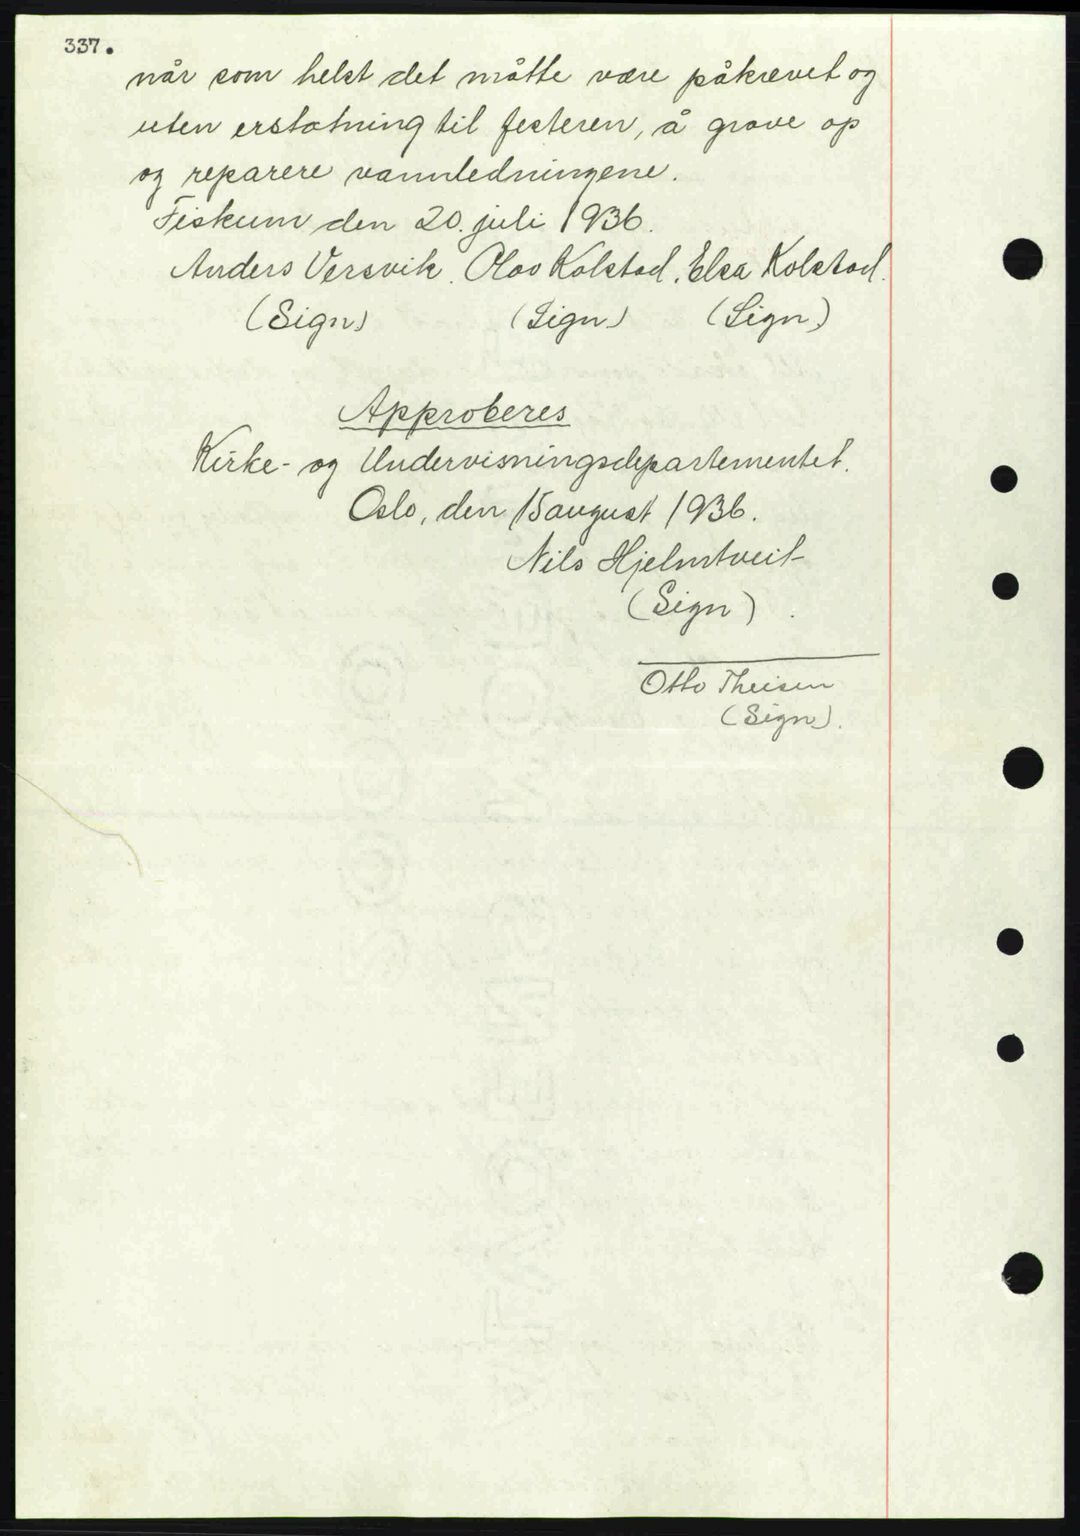 337.
når som helst det måtte være påkrevet og
uten erstatning til festeren, å grave op
og reparere vannledningene.
Fiskum den 20. juli 1936.
Anders Versvik. Olav Kolstad. Elsa Kolstad.
(Sign) (Sign) (Sign)
Approberes
Kirke- og Undervisningsdepartementet.
Oslo, den 15 august 1936.
Nils Hjelmtveit
(Sign)
Otto Theisen
(Sign).